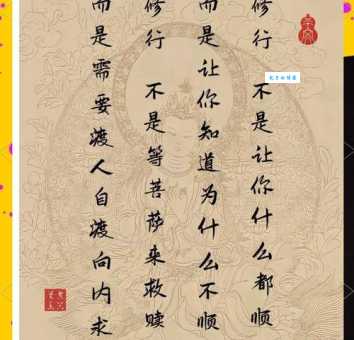 修行 不是让你什么都顺
而是让你知道为什么不顺
修行 不是等菩萨来救赎
而是需要渡人自渡向内求